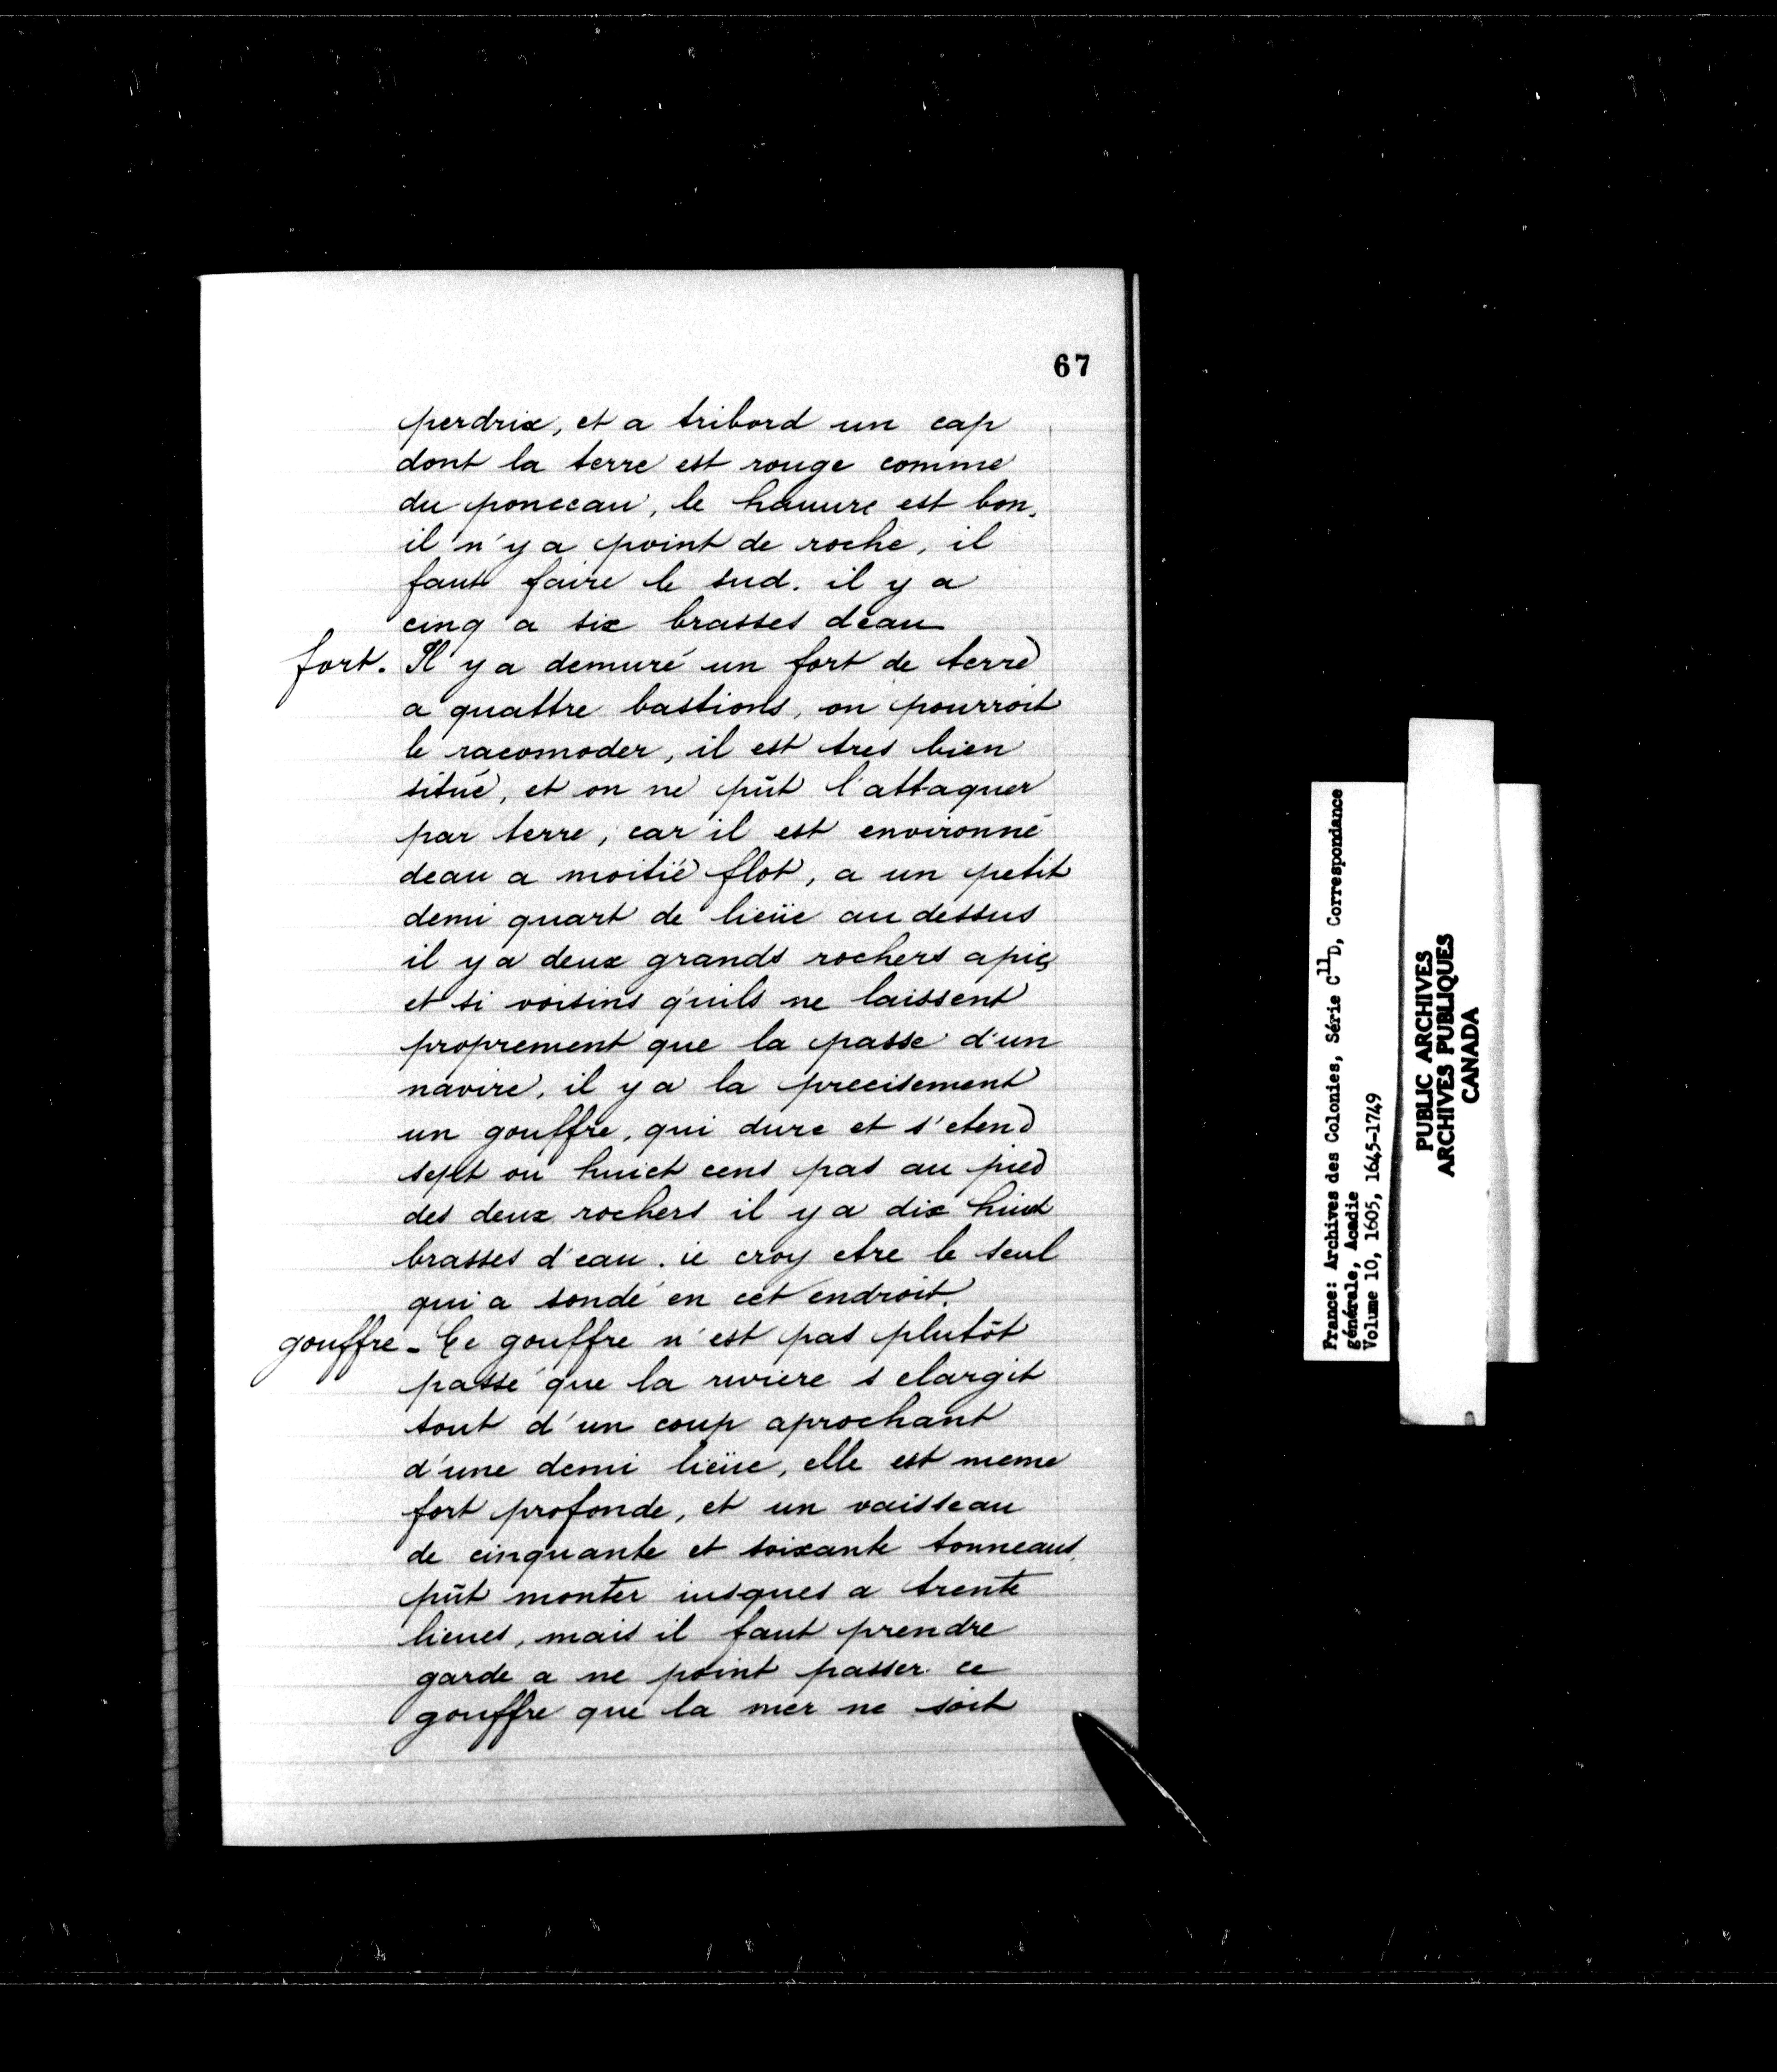 67
perdrix, et a tribord un cap
dont la terre est rouge comme
du ponceau, le hauure est bon.
il n'y a point de roche, il
faut faire le sud. il y a
cinq a six brasses deau
fort. Il y a demuré un fort de terre
a quattre bastions, on pourroit
le racomoder, il est tres bien
situé, et on ne pût l'attaquer
par terre, car il est environné
deau a moitié flot, a un petit
demi quart de lieüe au dessus
il y a deux grands rochers apic
et si voisins quils ne laissent
proprement que la passe d'un
navire, il y a la precisement
un gouffre, qui dure et s'etend
sept ou huict cens pas au pied
des deux rochers il y a dix huict
brasses d'eau. ie croy etre le seul
qui a sondé en cet endroit.
gouffre - Ce gouffre n'est pas plutôt
passé que la riviere s elargit
tout d'un coup aprochant
d'une demi lieüe, elle est meme
fort profonde, et un vaisseau
de cinquante et soixante tonneaus
pût monter iusques a trente
lieues, mais il faut prendre
garde a ne point passer ce
gouffre que la mer ne soit
France: Archives des Colonies, Série C11D, Correspondance
générale, Acadie
Volume 10, 1605, 1645-1749
PUBLIC ARCHIVES
ARCHIVES PUBLIQUES
CANADA